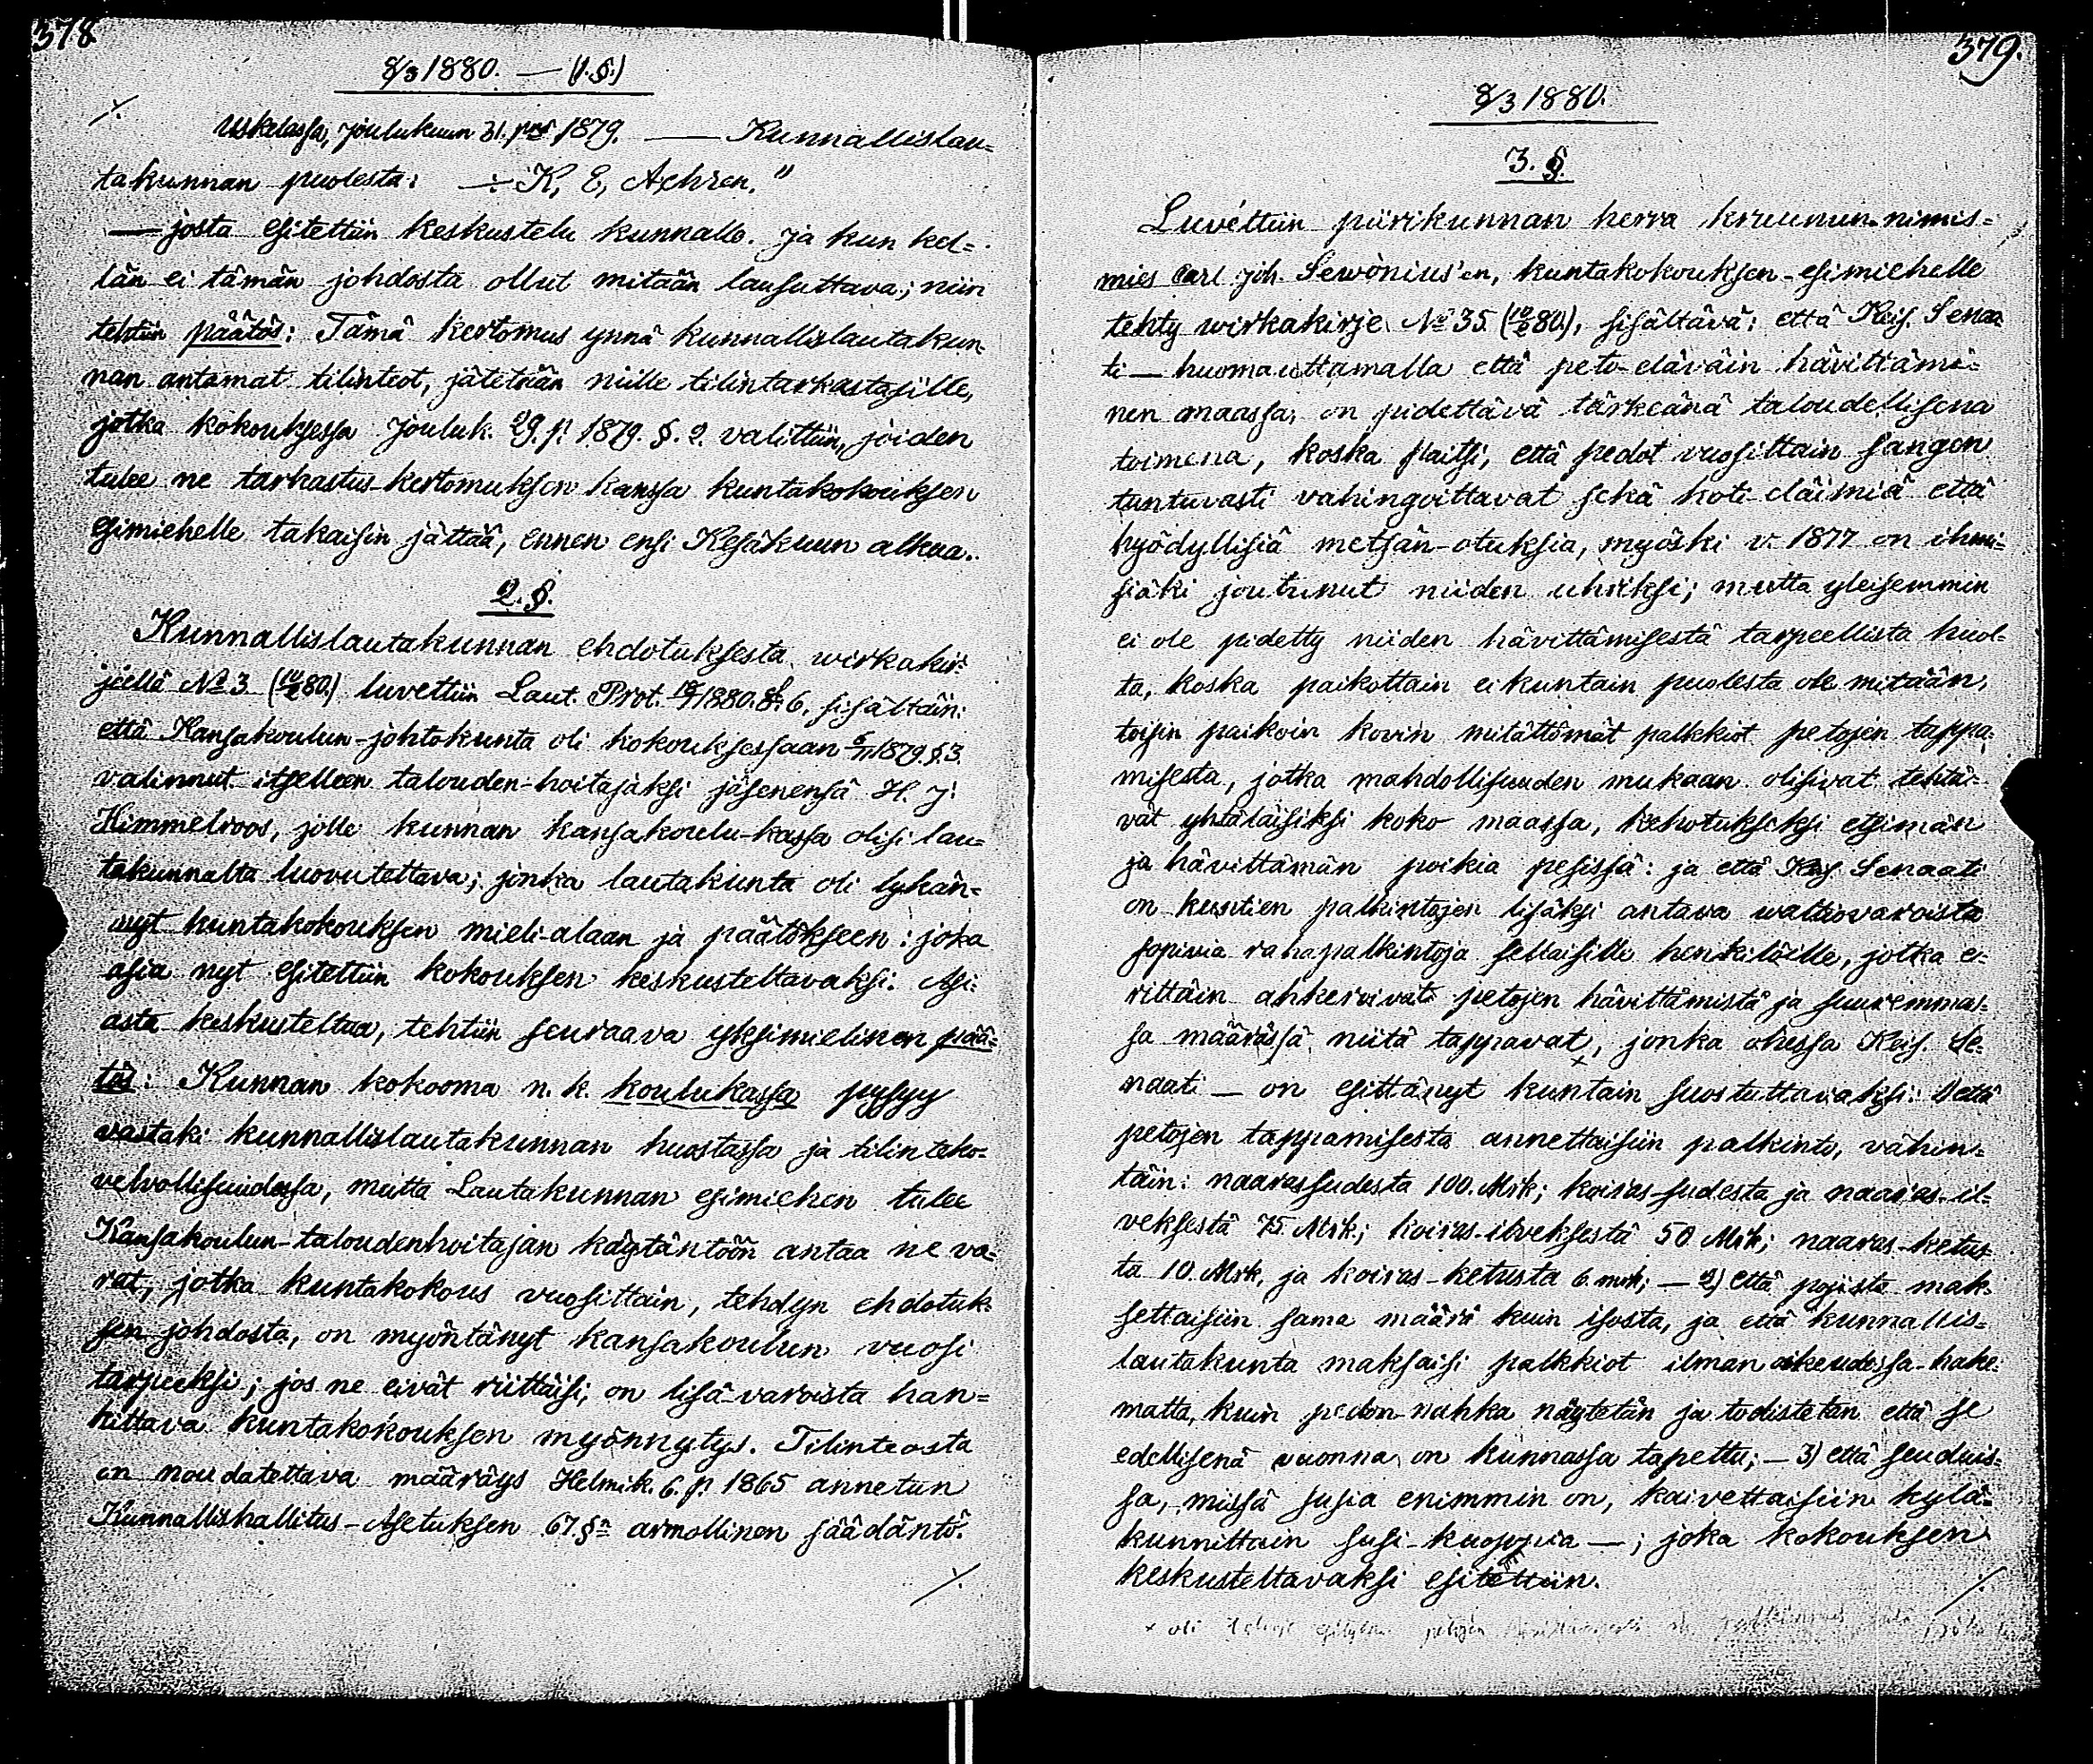 378
8/3 1880. — (1.§.)
⁒
Uskelassa, Joulukuun 31. pnä 1879. — Kunnallislau=
takunnan puolesta: ÷ K. E. Achrén."
— josta esitettiin keskustelu kunnalle. Ja kun kel=
län ei tämän johdosta ollut mitään lausuttava; niin
tehtiin päätös: Tämä kertomus ynnä kunnallislautakun=
nan antamat tilinteot, jätetään niille tilintarkastajille,
jotka kokouksessa Jouluk. 29. p. 1879. §. 2. valittiin, joiden
tulee ne tarkastus-kertomuksen kanssa kuntakokouksen
esimiehelle takaisin jättää, ennen ensi Kesäkuun alkua.
2.§.
Kunnallislautakunnan ehdotuksesta wirkakir=
jeellä No 3 (80.) luvettiin Laut. Prot. 1880. §. 6. sisältäin:
että Kansakoulun-johtokunta oli kokouksessaan 1879. §.3.
valinnut itselleen talouden-hoitajaksi jäsenensä H. J.
Himmelroos, jolle kunnan kansakoulu-kassa olisi lau=
takunnalta luovutettava; jonka lautakunta oli lykän=
nyt kuntakokouksen mieli-alaan ja päätökseen: joka
asia nyt esitettiin kokouksen keskusteltavaksi. Asi=
asta keskusteltua, tehtiin seuraava yksimielinen pää=
tös: Kunnan kokooma n. k. koulukassa pysyy
vastaki kunnallislautakunnan huostassa ja tilinteko=
velvollisuudessa, mutta Lautakunnan esimiehen tulee
Kansakoulun-taloudenhoitajan käytäntöön antaa ne va=
rat, jotka kuntakokous vuosittain, tehdyn ehdotuk=
sen johdosta, on myöntänyt kansakoulun vuosi
tarpeeksi; jos ne eivät riittäisi, on lisä-varoista han=
kittava kuntakokouksen myönnytys. Tilinteosta
on noudatettava määräys Helmik. 6. p. 1865 annetun
Kunnallishallitus-Asetuksen 67.§n armollinen säädäntö.
⁒
379.
8/3 1880.
3.§.
Luvettiin piirikunnan herra kruunun nimis=
mies Carl Joh. Sewónius'en, kuntakokouksen-esimiehelle
tehty wirkakirje No 35 (80.), sisältävä: että Keis. Senaa
ti — huomauttamalla että peto-eläväin hävittämi=
nen maassa, on pidettävä tärkeänä taloudellisena
toimena, koska flaitsi, että pedot vuosittain sangen
tuntuvasti vahingoittavat sekä koti-eläimiä että
hyödyllisiä metsän-otuksia, myöski v. 1877 on ihmi=
siäki joutunut niiden uhriksi; mutta yleisemmin
ei ole pidetty niiden hävittämisestä tarpeellista huol=
ta, koska paikottain ei kuntain puolesta ole mitään,
toisin paikoin kovin mitättömät palkkiot petojen tappa=
misesta, jotka mahdollisuuden mukaan olisivat tehtä=
vät yhtäläisiksi koko maassa, kehotukseksi etsimän
ja hävittämän poikia pesissä: ja että Keis. Senaati
on kuntien palkintojen lisäksi antava waltiovaroista
sopivia rahapalkintoja sellaisille henkilöille, jotka e=
rittäin ahkeroivat petojen hävittämistä ja suuremmas=
sa määrässä niitä tappavat, × jonka ohessa Keis. Se=
naati — on esittänyt kuntain suostuttavaksi: 1) että
petojen tappamisesta annettaisiin palkinto, vähin=
täin: naarassudesta 100. Mrk; koiras-sudesta ja naaras-il=
veksestä 75 Mrk.; koiras-ilveksestä 50 Mrk; naaras-ketus=
ta 10. Mrk, ja koiras-ketusta 6. mrk; — 2) että pojista mak=
settaisiin sama määrä kuin isosta, ja että kunnallis=
lautakunta maksaisi palkkiot ilman oikeudessa-hake=
matta, kuin pedon-nahka näytetän ja todistetan että se
edellisenä vuonna on kunnassa tapettu; — 3) että seuduis=
sa, missä susia enimmin on, kaivettaisiin kylä=
kunnittain susi-kuoppia —; joka kokouksen
keskusteltavaksi esitettiin.
⁒
× oli petojen